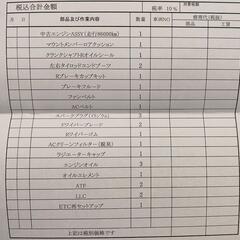 税込合計金額
税率 10% 消費税
月 日 部品及び作業内容 数量 単価(税抜) 修理代(税抜)
部品 工賃
中古エンジンASSY(走行86000km) 1
マウントメンバーロアクッション 1
クランクシャフトRオイルシール 1
左右タイロッドエンドブーツ 2
Rブレーキカップキット 1
ブレーキフルード 1
ファンベルト 1
ACベルト 1
スパークプラグ(イリジウム) 3
Fワイパーブレード 2
Rワイパーゴム 1
ACクリーンフィルター(脱臭) 1
ラジエーターキャップ 1
エンジンオイル 3
オイルエレメント 1
ATF 2
LLC 2
ETC再セットアップ 1
上記は税別価格です